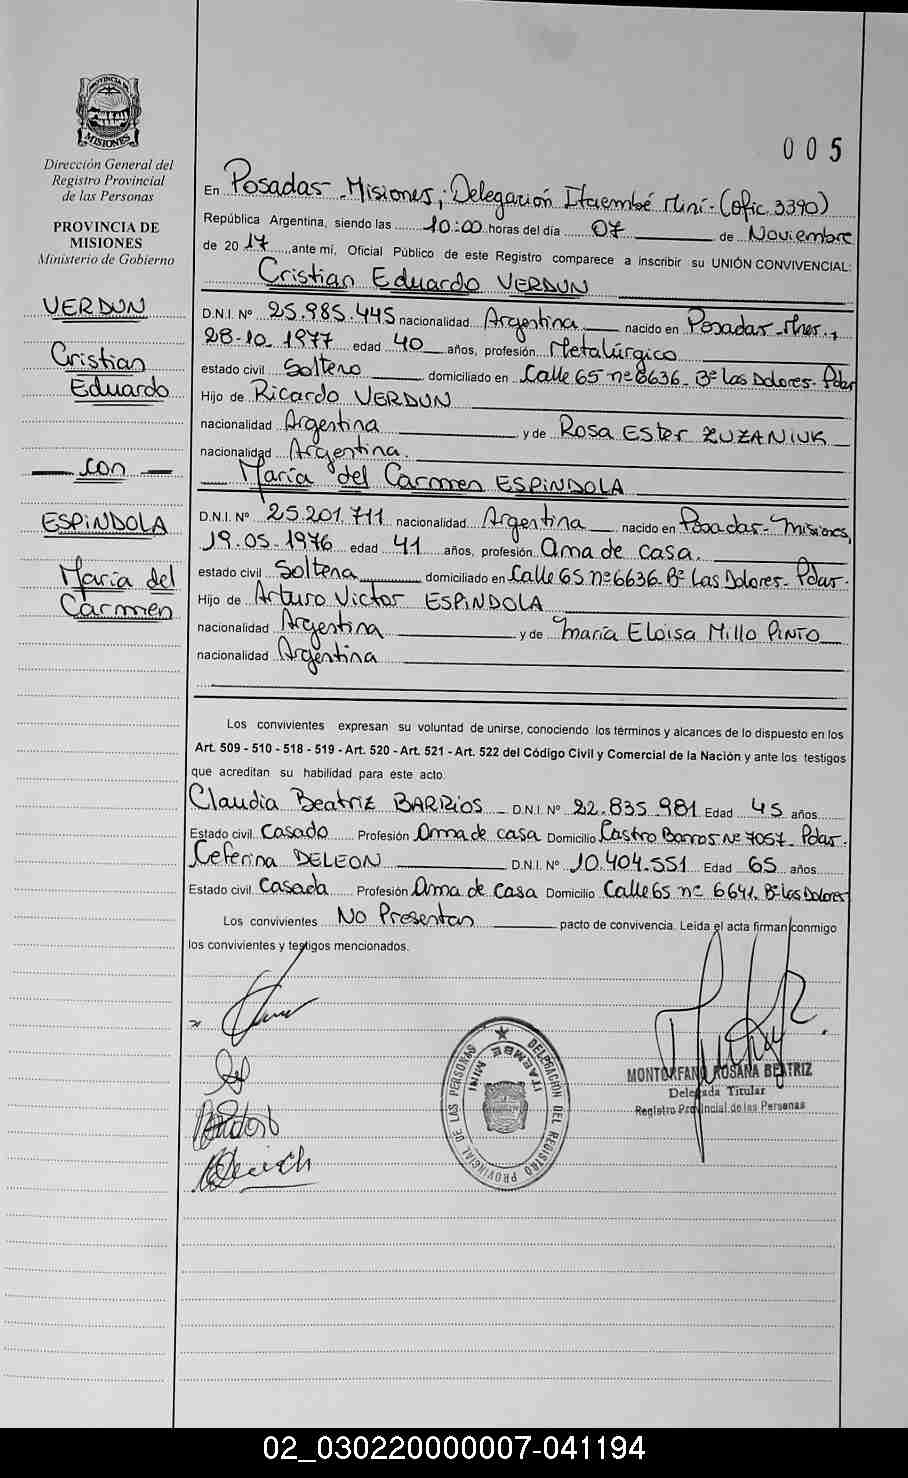 005
Dirección General del
Registro Provincial
de las Personas
PROVINCIA DE
MISIONES
Ministerio de Gobierno
VERDUN
Cristian
Eduardo
con
ESPINDOLA
María del
Carmen
En Posadas-Misiones; Delegación Itaembé Miní-(Ofic. 3390)
República Argentina, siendo las 10:00 horas del día 07 de Noviembre
de 2017, ante mí, Oficial Público de este Registro comparece a inscribir su UNIÓN CONVIVENCIAL:
Cristian Eduardo VERDUN
D.N.I. Nº 25.985.445 nacionalidad Argentina nacido en Posadas-Mnes.,
28-10-1977 edad 40 años, profesión Metalúrgico
estado civil Soltero domiciliado en Calle 65 nº 6636. Bº Las Dolores. Pdas
Hijo de Ricardo VERDUN
nacionalidad Argentina y de Rosa Ester ZUZANIUK
nacionalidad Argentina.
María del Carmen ESPINDOLA
D.N.I. Nº 25.201.711 nacionalidad Argentina nacido en Posadas-Misiones,
19-05-1976 edad 41 años, profesión Ama de casa.
estado civil Soltera domiciliado en Calle 65 nº 6636-Bº Las Dolores-Pdas.
Hijo de Arturo Victor ESPINDOLA
nacionalidad Argentina y de María Eloisa Millo PINTO
nacionalidad Argentina
Los convivientes expresan su voluntad de unirse, conociendo los términos y alcances de lo dispuesto en los
Art. 509 - 510 - 518 - 519 - Art. 520 - Art. 521 - Art. 522 del Código Civil y Comercial de la Nación y ante los testigos
que acreditan su habilidad para este acto:
Claudia Beatriz BARRIOS D.N.I. Nº 22.835.981 Edad 45 años
Estado civil Casado Profesión Ama de casa Domicilio Castro Barros Nº 7057-Pdas.
Ceferina DELEON D.N.I. Nº 10.404.551 Edad 65 años
Estado civil Casada Profesión Ama de casa Domicilio Calle 65 nº 6641. Bº Las Dolores
Los convivientes No Presentan pacto de convivencia. Leída el acta firman conmigo
los convivientes y testigos mencionados.
DELEGACION DEL REGISTRO PROVINCIAL DE LAS PERSONAS
ITAEMBE MINI
MONTORFANO ROSANA BEATRIZ
Delegada Titular
Registro Provincial de las Personas
02_030220000007-041194